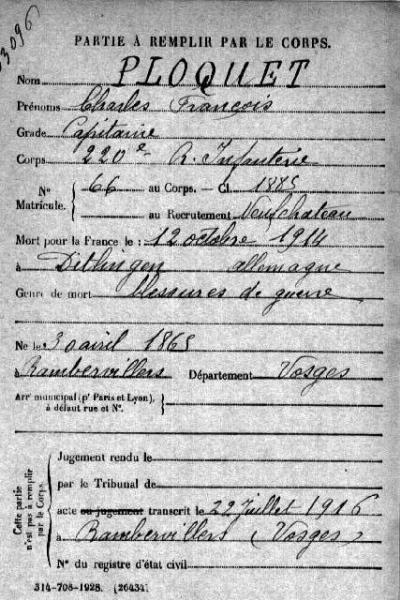 3096
PARTIE À REMPLIR PAR LE CORPS.
Nom PLOQUET
Prénoms Charles François
Grade Capitaine
Corps 220e R. Infanterie
N° Matricule. { 66 au Corps. — Cl. 1885
au Recrutement Neufchateau
Mort pour la France le : 12 octobre 1914
à Ditlingen allemagne
Genre de mort blessures de guerre
Né le 30 avril 1865
à Rambervillers Département Vosges
Arrt municipal (pr Paris et Lyon), à défaut rue et N°. }
Cette partie n'est pas à remplir par le Corps.
Jugement rendu le
par le Tribunal de
acte ou jugement transcrit le 22 Juillet 1916
à Rambervillers (Vosges)
N° du registre d'état civil
314-708-1928. [26434]